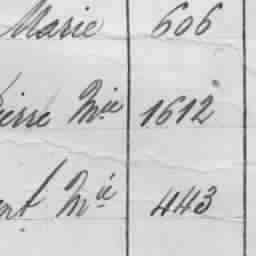 Marie 606
ierre Mie 1612
ent Mie 443